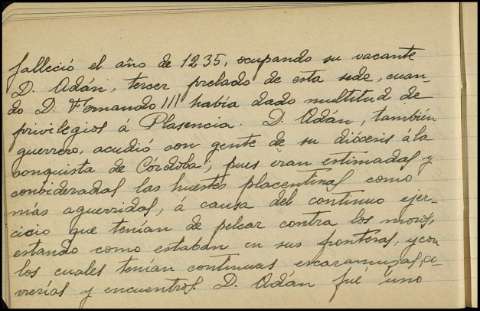 falleció el año de 1235, ocupando su vacante
D. Adán, tercer prelado de esta sede, cuan-
do D. Fernando III había dado multitud de
privilegios á Plasencia. D. Adán, también
guerrero, acudió con gente de su diócesis á la
conquista de Córdoba, pues eran estimadas y
consideradas las huestes placentinas como
más aguerridas, á causa del continuo ejer-
cicio que tenían de pelear contra los moros,
estando como estaban en sus fronteras, y con
los cuales tenían continuas escaramuzas, co-
rrerías y encuentros. D. Adán fué uno